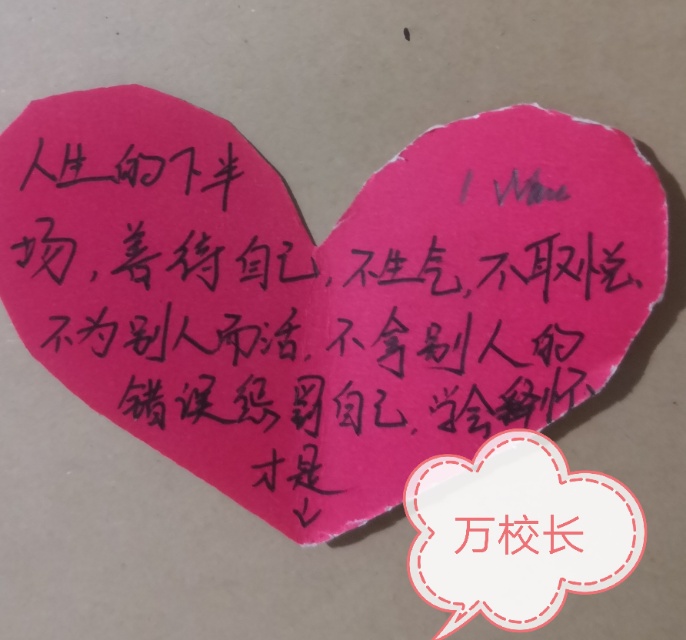 人生的下半
场,善待自己,不生气,不取悦、
不为别人而活,不拿别人的
错误惩罚自己,学会释怀、
才是
↓
万校长